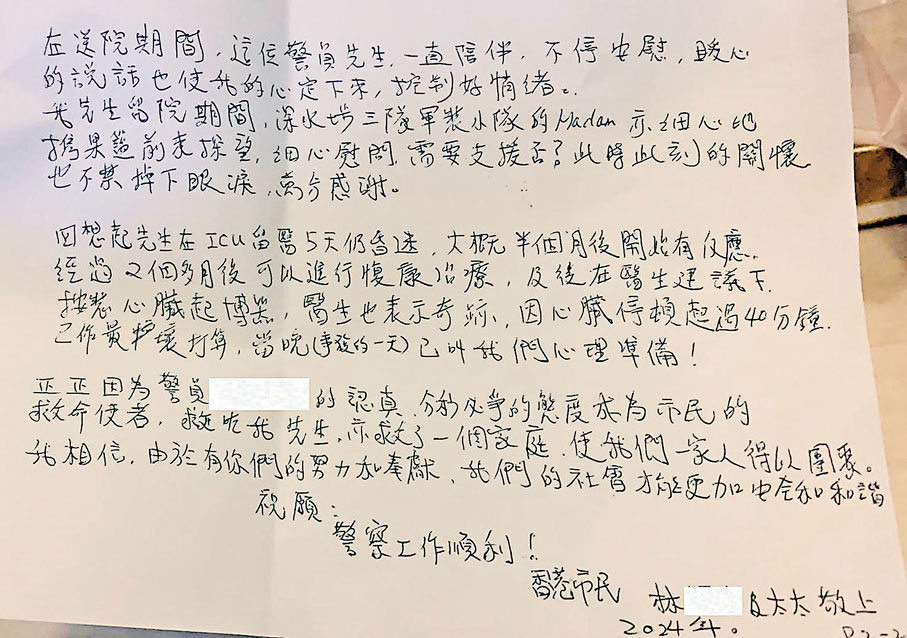 在送院期間，這位警員先生一直陪伴，不停安慰，暖心
的說話也使我的心定下來，控制好情緒。
我先生留院期間，深水埗三隊軍裝小隊的Madam亦細心地
攜果籃前來探望，細心慰問需要支援否？此時此刻的關懷
也不禁掉下眼淚，萬分感謝。
回想起先生在ICU留醫5天仍昏迷，大概半個月後開始有反應，
經過2個多月後可以進行復康治療，及後在醫生建議下，
按裝心臟起博器，醫生也表示奇跡，因心臟停頓超過40分鐘，
已作最坏壞打算，當晚(事發的一天)已叫我們心理準備！
正正因為警員 的認真，分秒必爭的態度成為市民的
救命使者，救咗我先生，亦救了一個家庭，使我們一家人得以團聚。
我相信，由於有你們的努力和奉獻，我們的社會才能更加安全和和諧
祝願：
警察工作順利！
香港市民
林 及太太敬上
2024年。
P.2-2